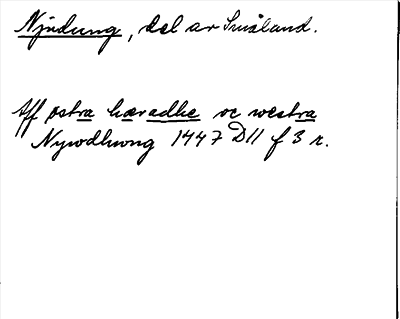 Njudung, del av Småland.
Aff østra hæradhe oc westra
Nywdhwng 1447 D11 f 3 r.